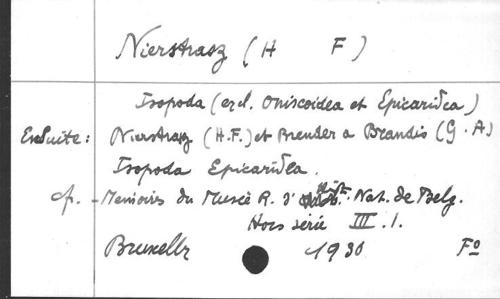 Nierstrasz (H F)
Isopoda (excl. Oniscoidea et Epicaridea)
Ensuite: Nierstrasz (H.F.) et Brender a Brandis (G.A)
Isopoda Epicaridea.
cf. - Memoires du Musée R. d' Hist. Nat. de Belg.
Hors série III.1.
Bruxelles 1930 Fo